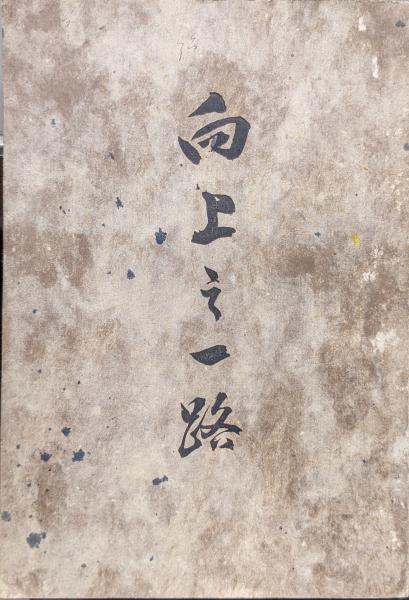 向上之一路